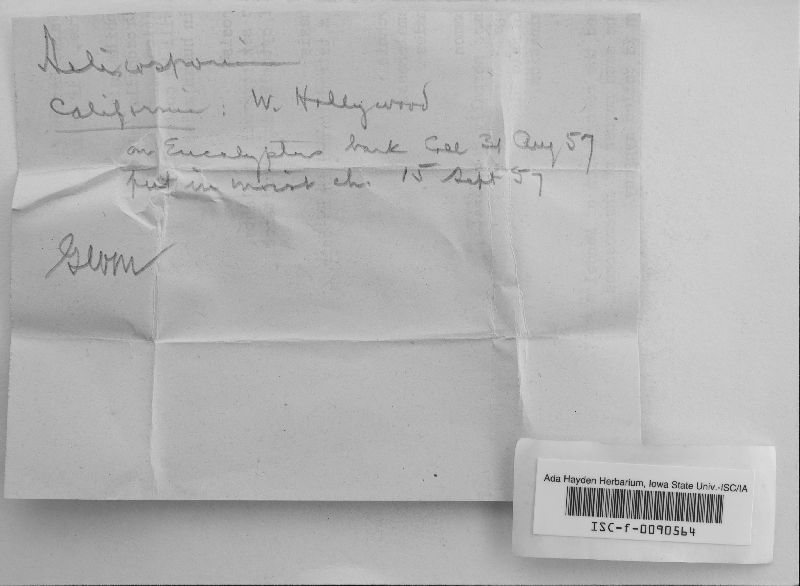 Helicosporium
California: W. Hollywood
on Eucalyptus bark Coll 31 Aug 57
put in moist ch. 15 Sept 57
GWM
Ada Hayden Herbarium, Iowa State Univ.-ISC/IA
ISC-f-0090564